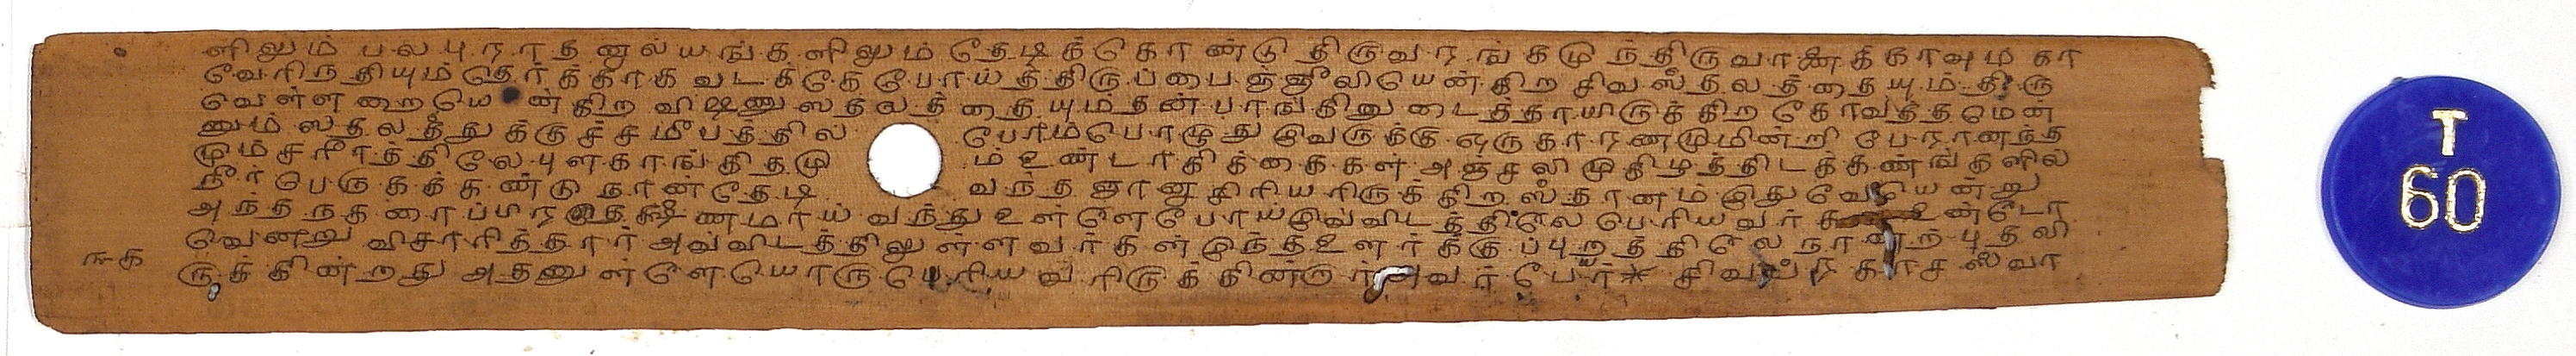 ளிலும் பல புராதனாலயங்களிலும் தேடிக்கொண்டு திருவரங்கமுந்திருவானைக்காவும் கா
வேரிநதியும் தெர்க்காக வடக்கே போய்த்திருப்பைஞ்ஞீலியென்கிற சிவஸ்தலத்தையும் திரு
வெள்ளறையென்கிற விஷ்ணுஸ்தலத்தையும் தன் பாங்கினுடைத்தாயிருக்கிற கோவத்தமென்
னும் ஸ்தலத்துக்குச்சமீபத்தில் போம்பொழுது இவருக்கு ஒரு காரணமுமின்றி பேரானந்த
மும் சரீரத்திலே புளகாங்கிதமு ம் உண்டாகிக்கைகள் அஞ்சலி முகிழத்திடக்கண்ங்களில்
நீர் பெருகக்கண்டு நான் தேடி வந்த ஞானாசிரியரிருக்கிற ஸ்தானம் இதுவேயென்று
அந்த நகரைப்பிரதக்ஷிணமாய் வந்து உள்ளே போய் இவ்விடத்திலே பெரியவர் உண்டோ
வென்று விசாரித்தார் அவ்விடத்திலுள்ளவர்கள் இந்த உளர்க்கு ப்புறத்திலே நாணற் புதலி
ருக்கின்றது அதனுள்ளேயொரு பெரியவரிருக்கின்றார் அவர் பேர்* சிவப்ரகாச ஸ்வா
௩௧
T
60